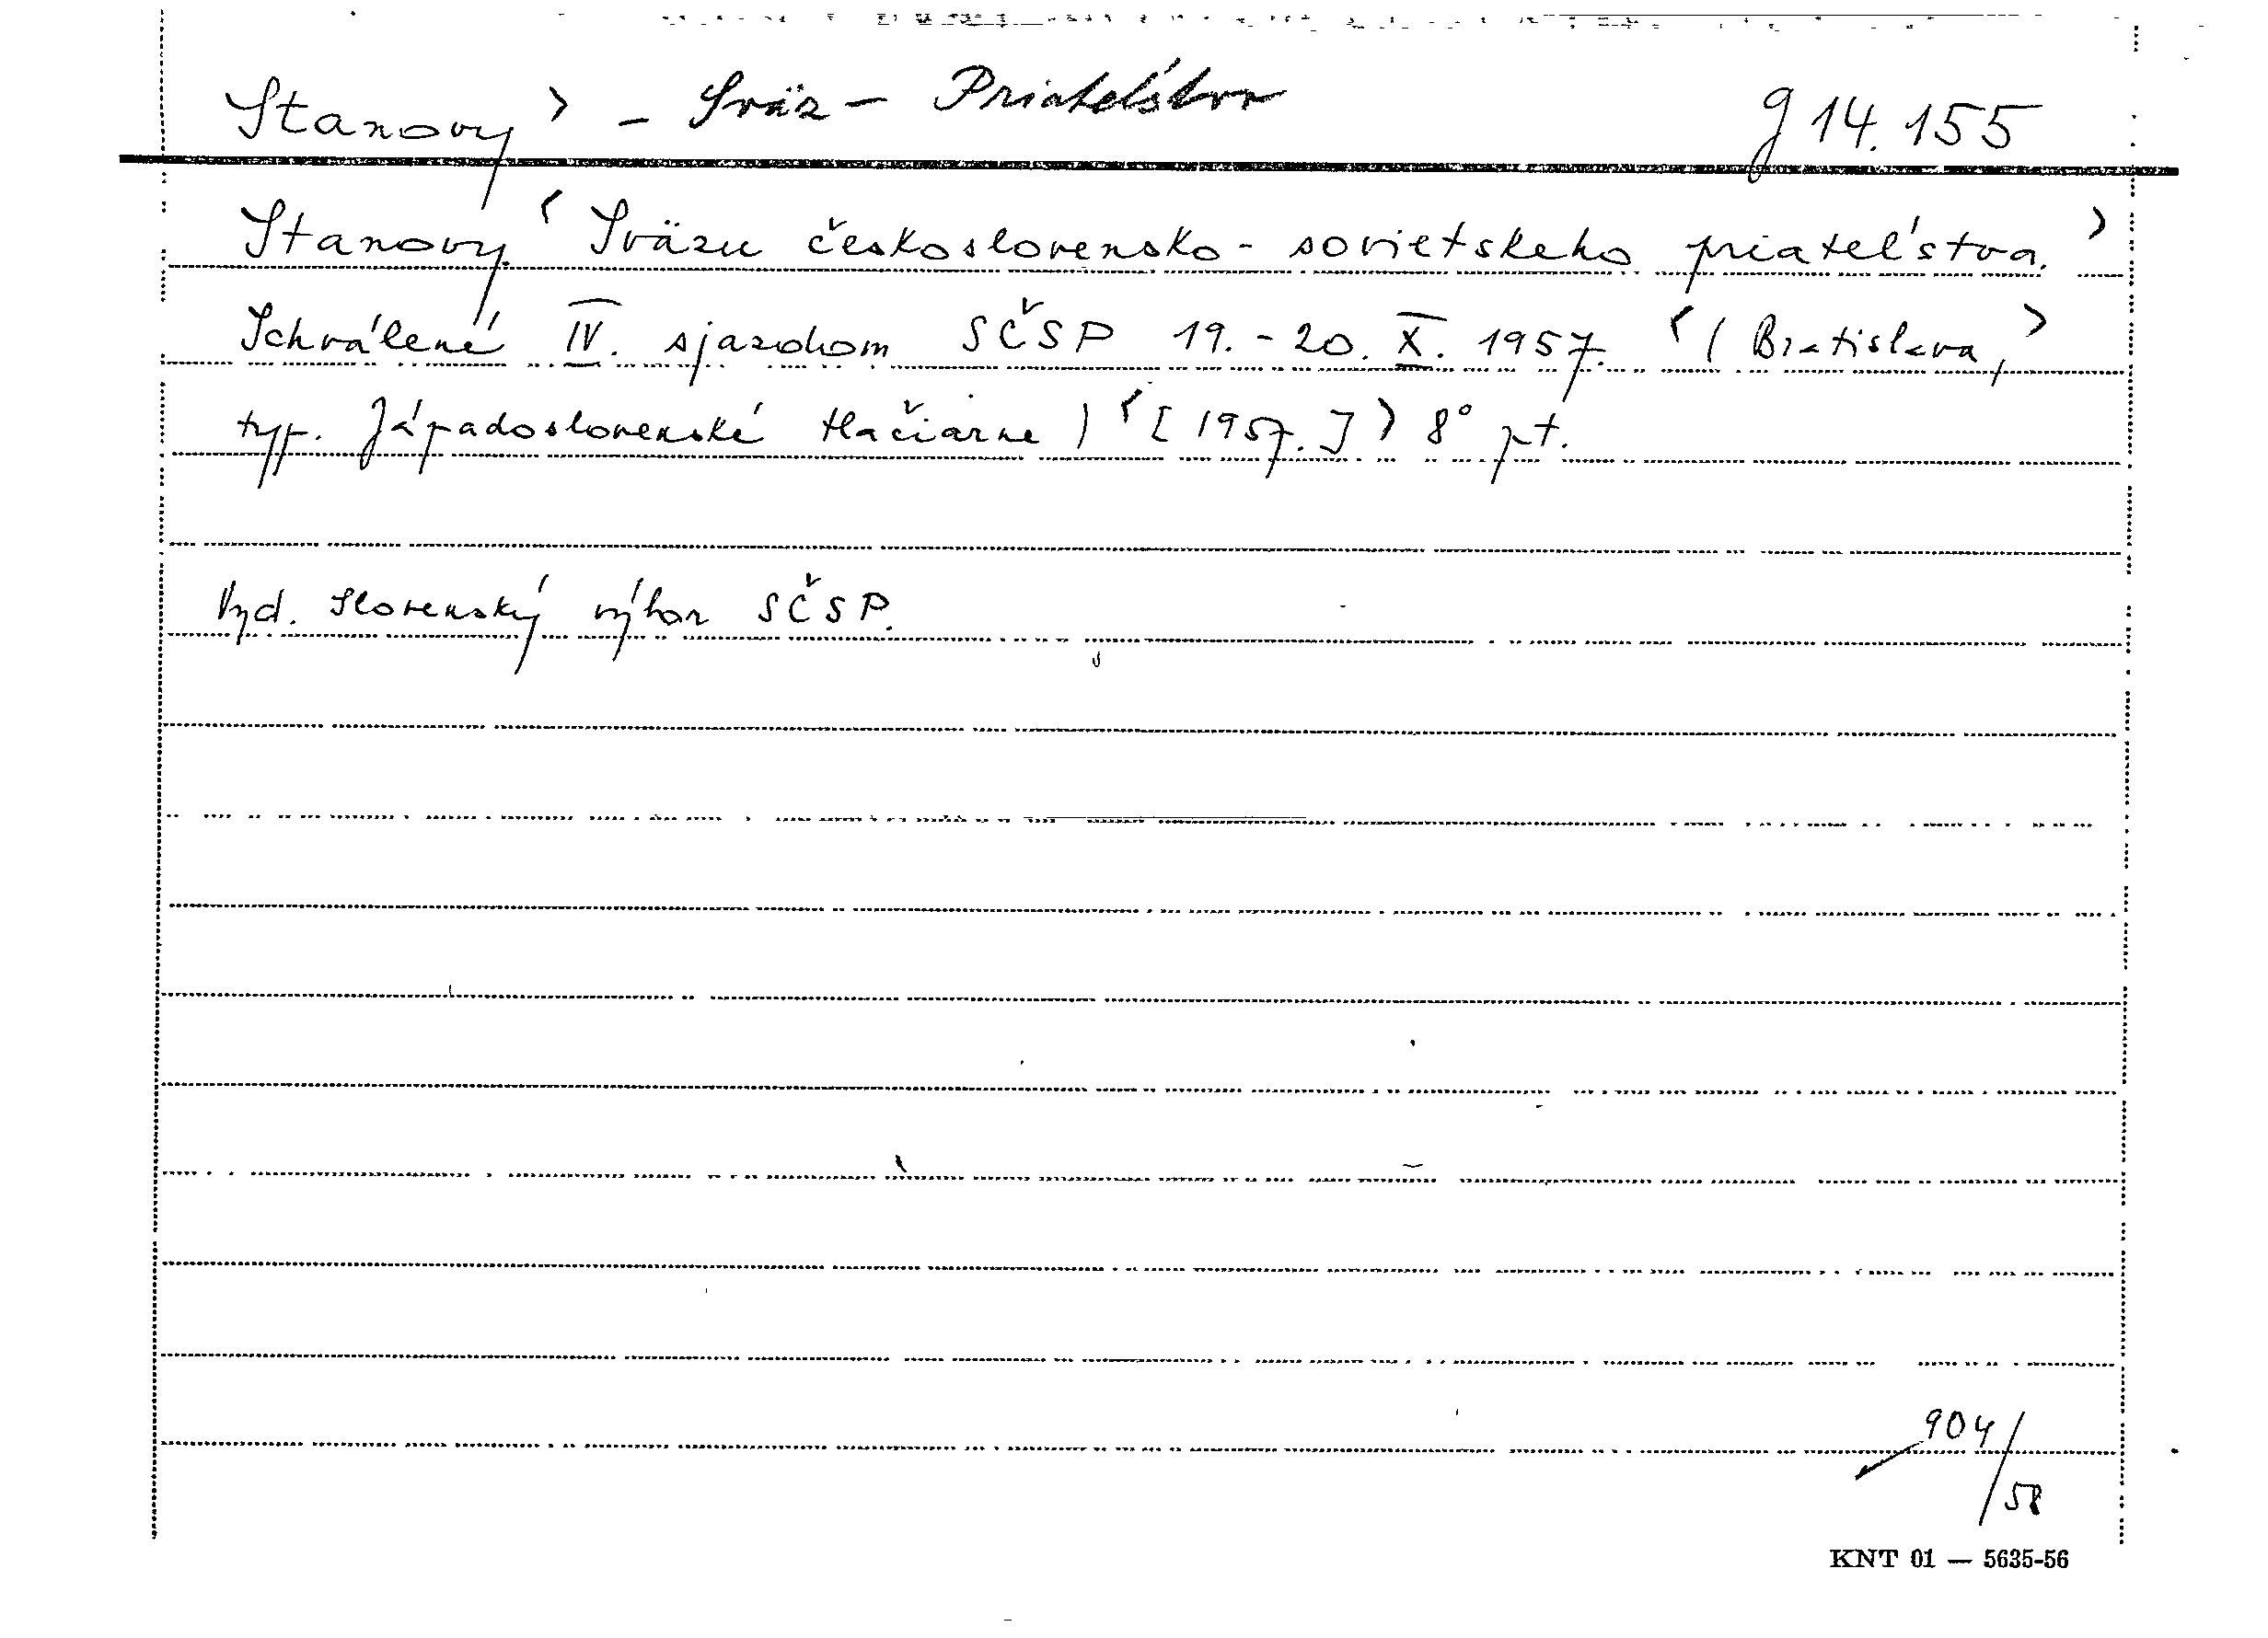 Stanovy > - Sväz - Priateľstvo g 14.155
Stanovy < Sväzu československo-sovietskeho priateľstva. >
Schválené IV. sjazdom SČSP 19.-20. X. 1957. < (Bratislava, >
typ. Západoslovenské tlačiarne) < [1957.] > 8° pt.
Vyd. Slovenský výbor SČSP.
904/58
KNT 01 — 5635-56